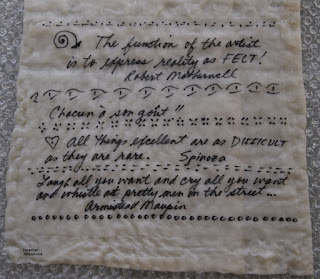 The function of the artist
is to express reality as FELT!
Robert Motherwell
Chacun à son goût"
♡ All things excellent are as DIFFICULT
as they are rare. Spinoza
Laugh all you want and cry all you want
and whistle at pretty men in the street...
Armistead Maupin